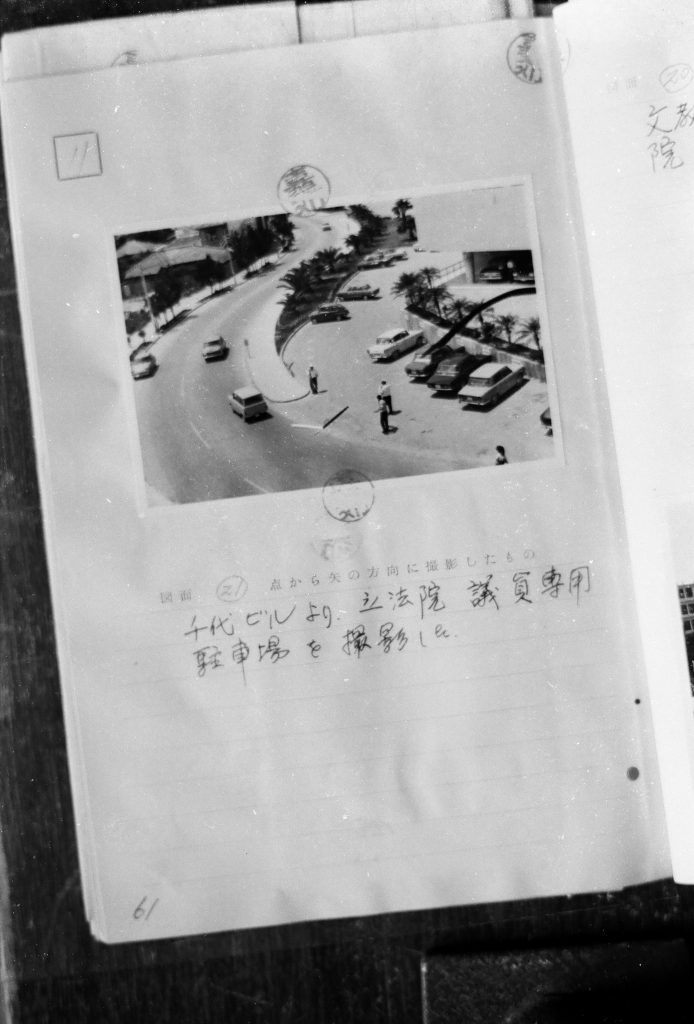 11
図面 ㉑ 点から矢の方向に撮影したもの
千代ビルより、立法院 議員専用
駐車場を撮影した.
61
図面 ⑳
文教
院